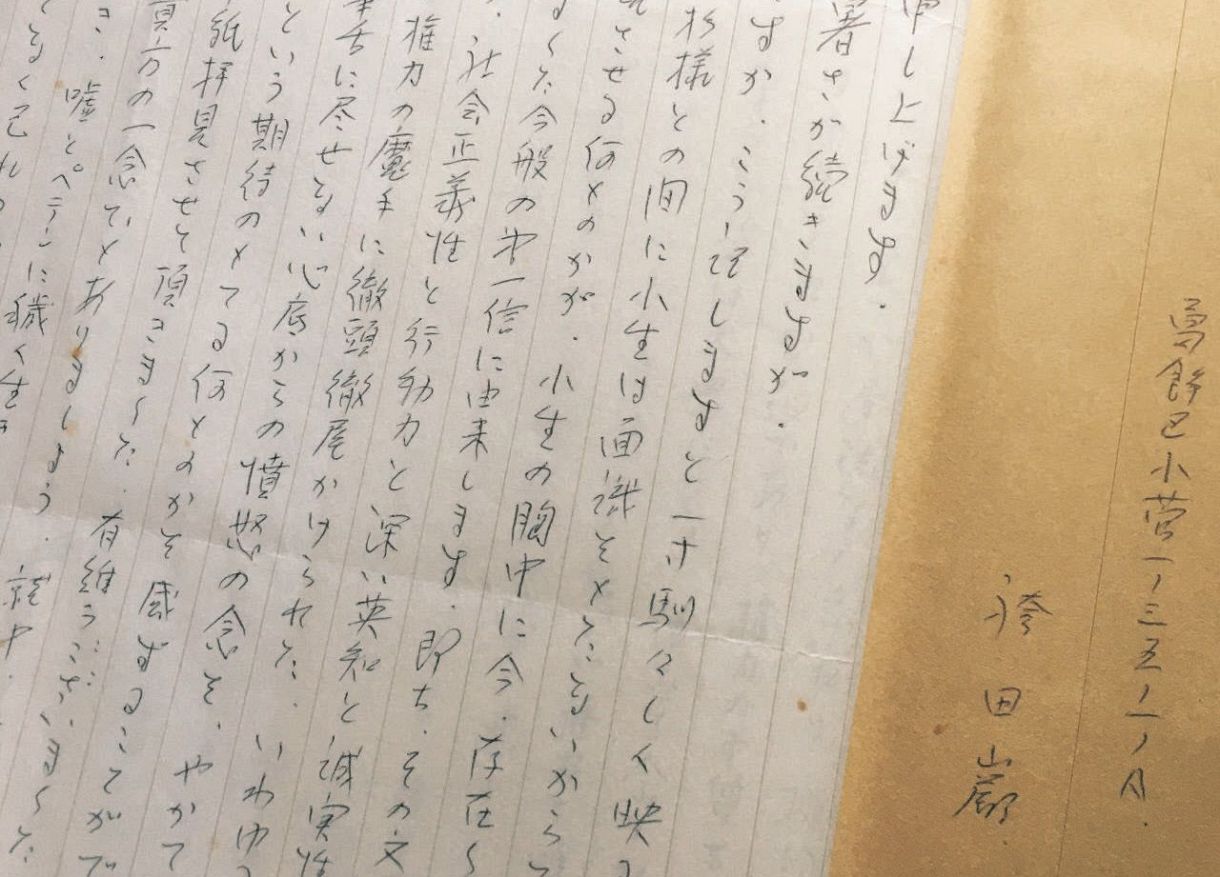 葛飾区小菅一ノ三五ノ一ノA.
袴田巌
申し上げます.
暑さか続きますが.
すか.こう記しますと一寸馴々しく映
杉様との間に小生は面識をもたないから
させる何ものかが.小生の胸中に今.存在し
した今般の第一信に由来します.即ち.その文
.社会正義性と行動力と深い英知と誠実性
権力の魔手に徹頭徹尾かけられた.いわゆ
筆舌に尽せない心底からの憤怒の念を.やがて
という期待のもてる何ものかを感ずることがで
紙拝見させて頂きました.有難うございました
真方の一念でもありましょう.就中.
き.嘘とペテンに穢く生き
なく己れの